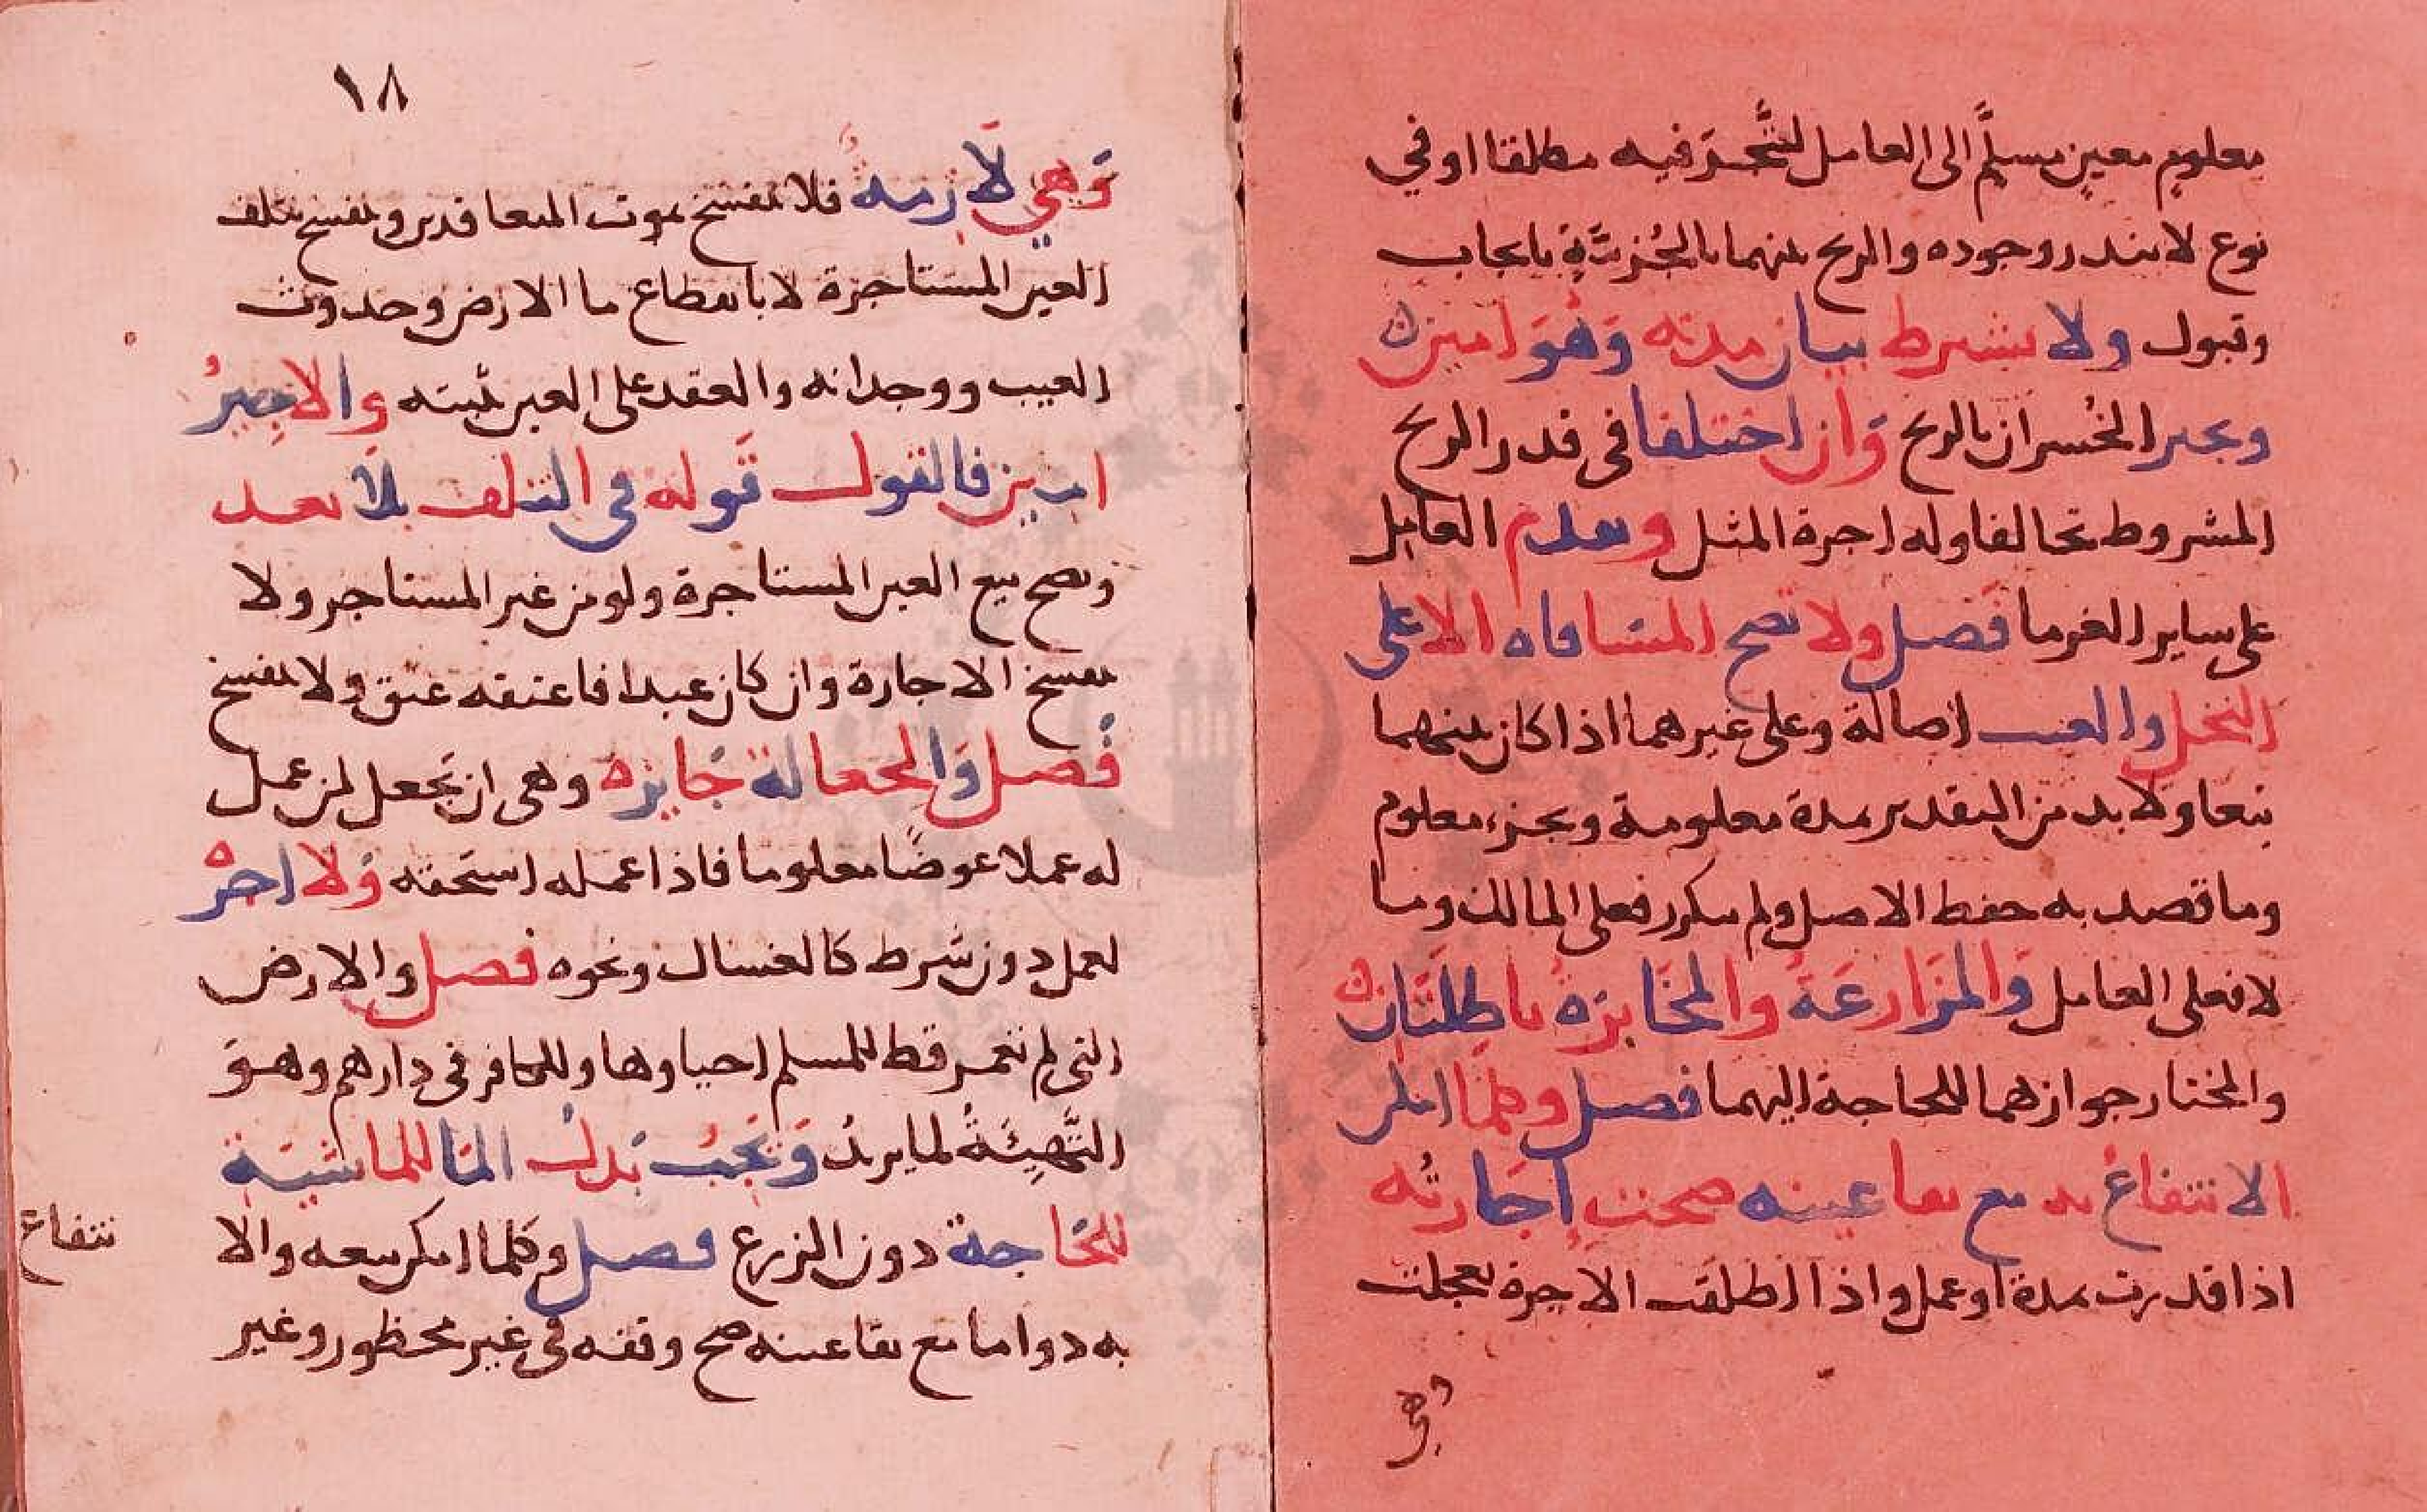 معلوم معين مسلم الى العامل لتتجر فيه مطلقا او في
نوع لا يندر وجوده والربح بينهما بالجزئية بايجاب
وقبول ولا يشرط بيان مدته وهو امين
ويجبر الخسران بالربح وان اختلفا فى قدر الربح
المشروط تحالفا وله اجرة المثل ويقدم العامل
على ساير الغرما فصل ولا تصح المساقاه الا على
النخل والعنب اصالة وعلى غيرهما اذا كان بينهما
تبعا ولا بد من التقدير بمدة معلومة وبجزء معلوم
وما قصد به حفظ الاصل ولم يتكرر فعلى المالك وما
لا فعلى العامل والمزارعة والمخابرة باطلتان
والمختار جوازهما للحاجة اليهما فصل وكلما امكن
الانتفاع به مع بقا عينه صحت اجارته
اذا قدرت بمدة او عمل واذا اطلقت الاجرة تعجلت
وهي
١٨
وهي لازمة فلا تنفسخ بموت المتعاقدين وتنفسخ بتلف
العين المستاجرة لا بانقطاع ما الارض وحدوث
العيب ووجدانه والعقد على العين والاجير
امين فالقول قوله في التلف بلا تعد
ويصح بيع العين المستاجرة ولو من غير المستاجر ولا
تنفسخ الاجارة وان كان عبدا فاعتقه عتق ولا تنفسخ
فصل والجعالة جايزه وهى ان يجعل لمن عمل
له عملا عوضا معلوما فاذا عمله استحقه ولا اجره
لعمل دون شرط كالغسال ونحوه فصل والارض
التى لم تعمر قط للمسلم احياوها وللكافر فى دارهم وهو
التهيئة لما يريد ويجب بذل الما للماشية
للحاجة دون الزرع فصل وكلما امكن بيعه والا
نتفاع
به دواما مع بقا عينه صح وقفه في غير محظور وغير